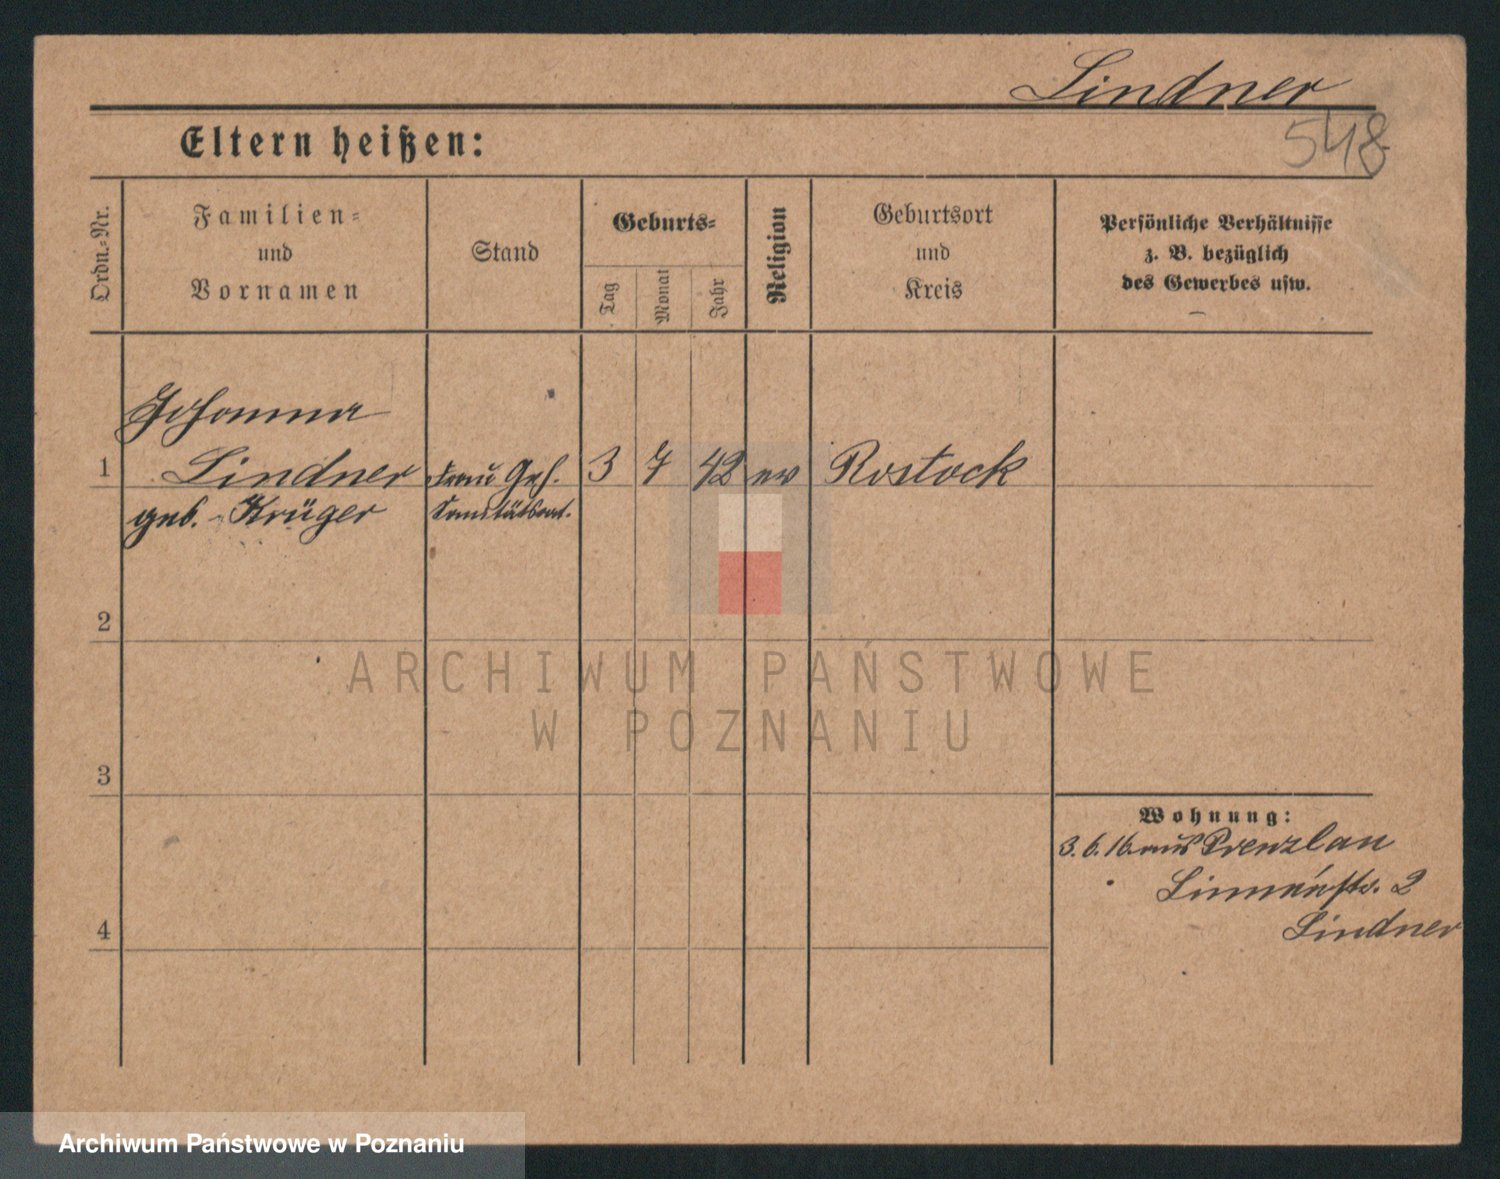 Lindner
548
Eltern heißen:
Ordn.-Nr.
Familien-
und
Vornamen
Stand
Geburts-
Tag
Monat
Jahr
Religion
Geburtsort
und
Kreis
Persönliche Verhältnisse
z. B. bezüglich
des Gewerbes usw.
Johanna
1 Lindner Frau Geh. 3 7 42 ev Rostock
geb. Krüger Sanitätsrat.
2
ARCHIWUM PAŃSTWOWE
W POZNANIU
3
Wohnung:
3. 6. 16. aus Prenzlau
Linnéstr. 2
Lindner
4
Archiwum Państwowe w Poznaniu